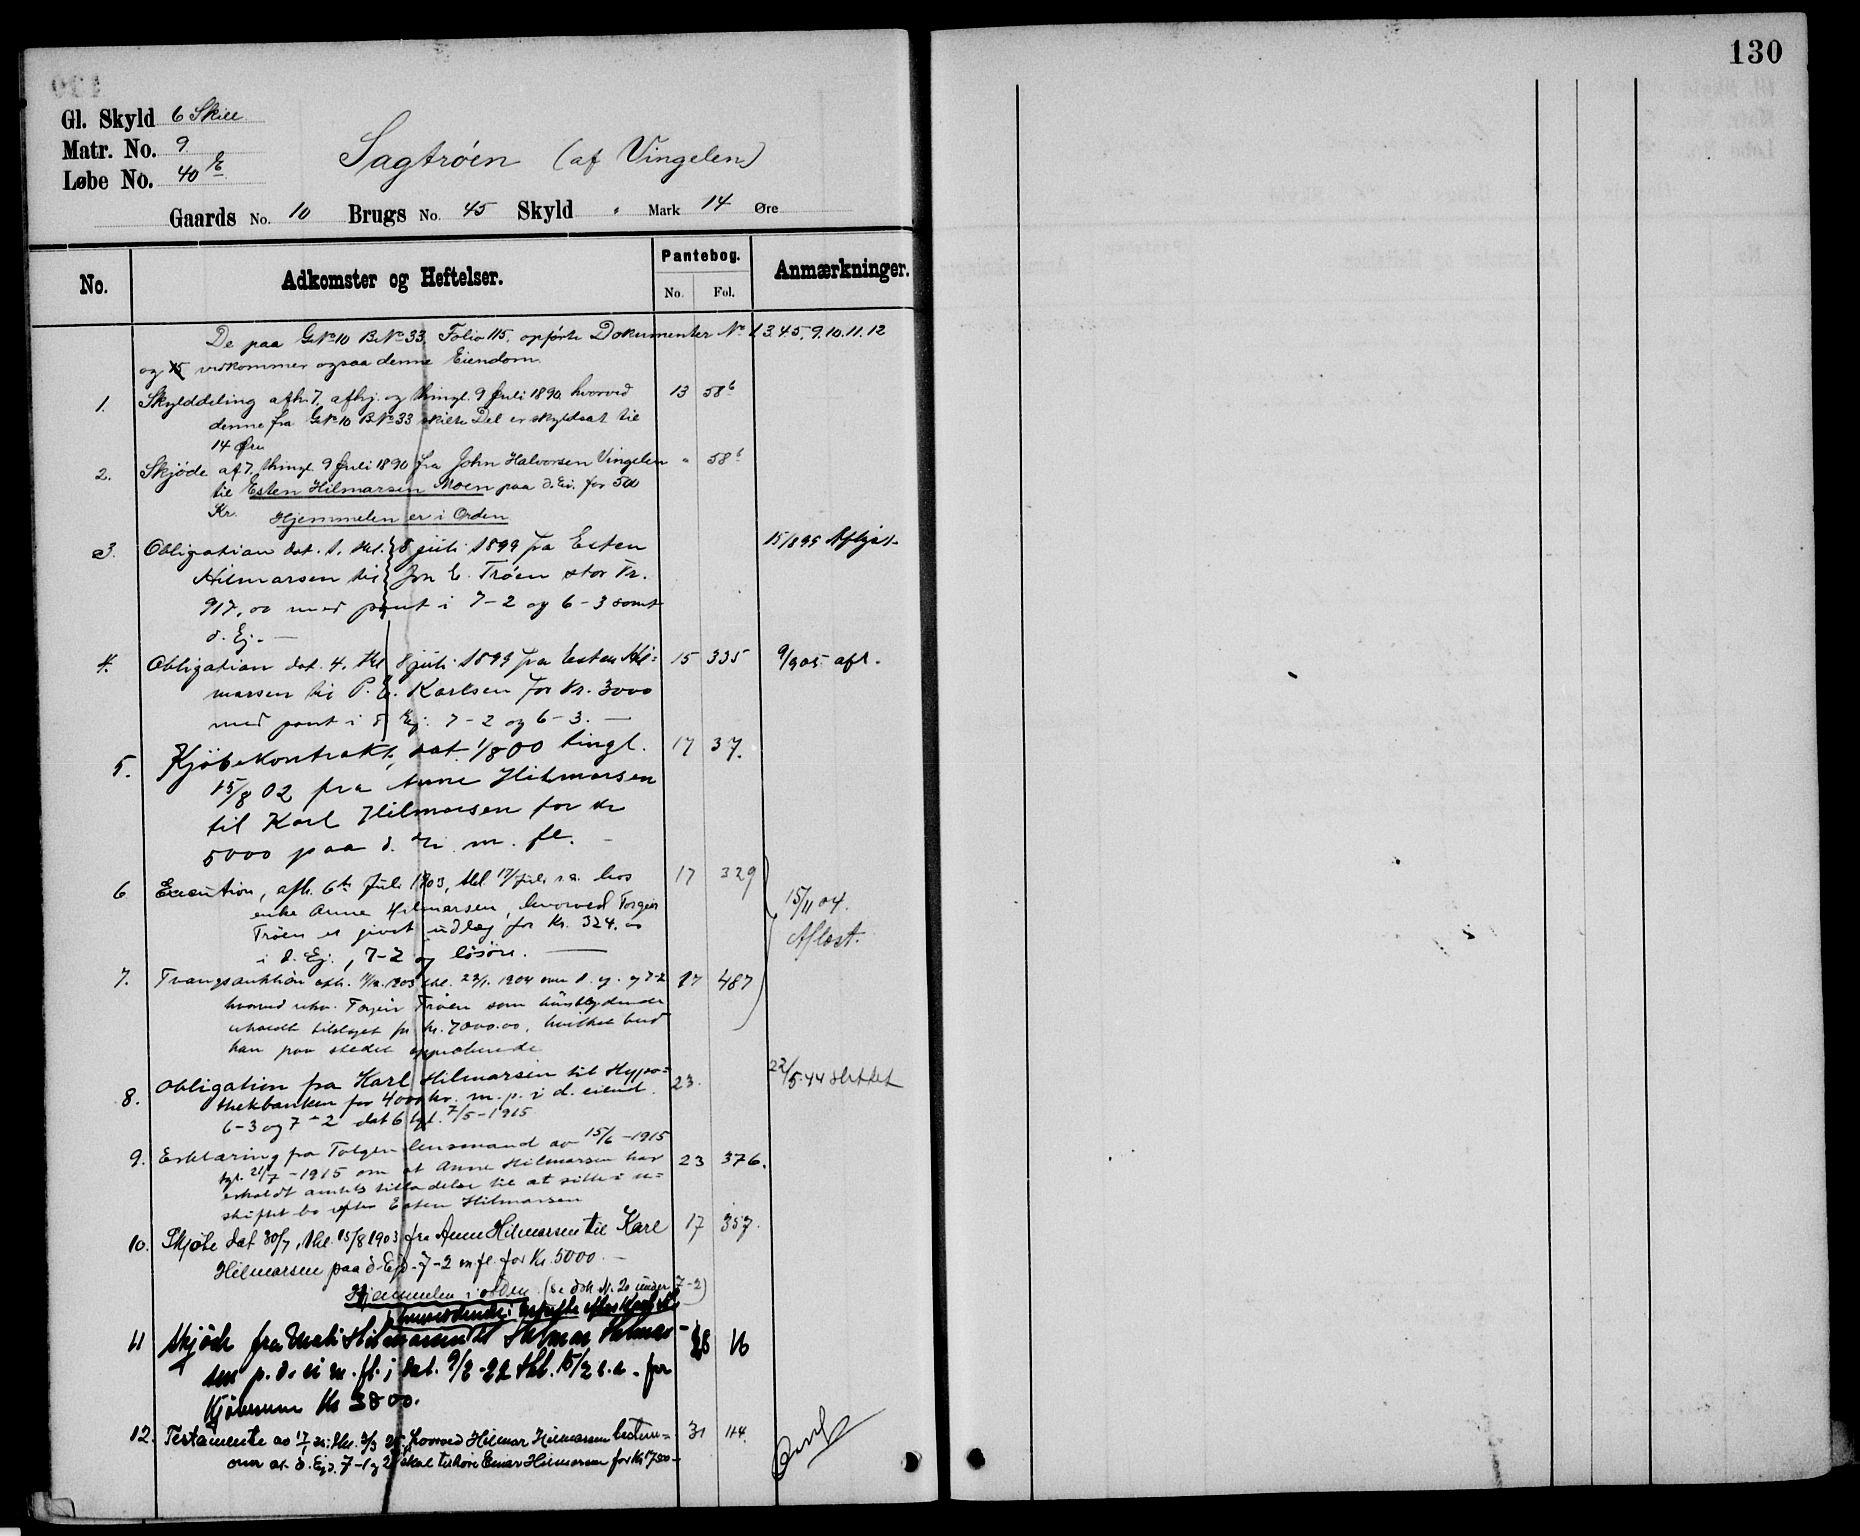 130
Gl. Skyld 6 Skill
Matr. No. 9
Løbe No. 40 E
Sagtrøen (af Vingelen)
Gaards No. 10 Brugs No. 45 Skyld " Mark 14 Øre
No. Adkomster og Heftelser. Pantebog. No. Fol. Anmærkninger.
De paa GNo 10 BNo 33, Folio 115, opførte Dokumenter No 1.3.4.5.9.10.11.12
og 15 vedkommer ogsaa denne Eiendom
1. Skylddeling afh. 7, afhj. og thingl. 9 Juli 1890 hvorved 13 58b
denne fra GNo 10 BNo 33 skilte Del er skyldsat til
14 Øre
2. Skjøde af 7, thingl. 9 Juli 1890 fra John Halvorsen Vingelen " 58b
til Esten Hilmarsen Moen paa d. Ei. for 500
Kr.
Hjemmelen er i Orden
3. Obligation dat. 1. thl. 8 juli 1899 fra Esten 15/8 99 Aflyst
Hilmarsen til Jon E. Trøen stor Kr.
917,00 med pant i 7-2 og 6-3 samt
d. Ej. —
4. Obligation dat. 4. thl 8 juli 1899 fra Esten Hil= 15 335 9/9 05 afl.
marsen til P. E. Karlsen for Kr. 3000
med pant i d Ej. 7-2 og 6-3. —
5. Kjøbekontrakt, dat. 1/8 00 tingl. 17 37.
15/8 02 fra Anne Hilmarsen
til Karl Hilmarsen for kr
5000 paa d. Ei. m. fl. —
6 Execution, afh. 6te Juli 1903, thl 17/juli s.a. hos 17 329
enke Anne Hilmarsen, hvorved Torger
Trøen er givet udlæg for Kr. 324.00
i d. Ej., 7-2 og løsøre. —
15/11 04.
Aflæst.
7. Tvangsauktion afh. 1903 thl. 22/1. 1904 over d. ej. og 7-2 17 487
hvorved Torger Trøen som høistbydende
erholdt tilslaget for kr. 7000.00, hvilket bud
han paa stedet approberede
8. Obligation fra Karl Hilmarsen til Hypo= 23. 22/5-44 slettet
thekbanken for 4000 kr. m. p. i d. eiend.
6-3 og 7-2 dat 6 tgl. 7/5-1915
9. Erklæring fra Tolgen lensmand av 15/6-1915 23 376.
tgl. 21/7-1915 om at Anne Hilmarsen har
erholdt amtets tilladelse til at sitte i u=
skiftet bo efter Esten Hilmarsen
10. Skjøte dat 30/7, thl. 15/8 1903 fra Anne Hilmarsen til Karl 17 357.
Hilmarsen paa d. Ejd. 7-2 m. fl. for Kr. 5000. —
Hjemmelen i orden. (se dok No. 20 under 7-2)
11 Skjøde fra Hilmarsen til Hilmar Hilmar- 28 16
sen p. d. ei m. fl. i dat. 9/2-22 thl. 15/2 s.a. for
Kjøbesum Kr 3800.
12. Testamente av thl. hvorved Hilmar Hilmarsen bestem= 31 114
mer at d. Ejd. 7-1 og 2 skal tilhøre Einar Hilmarsen for Kr 1700-